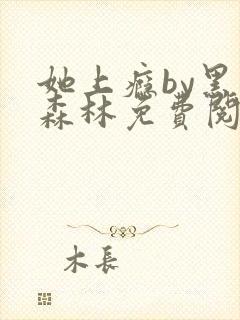 她上瘾by黑
森林免费阅
木長